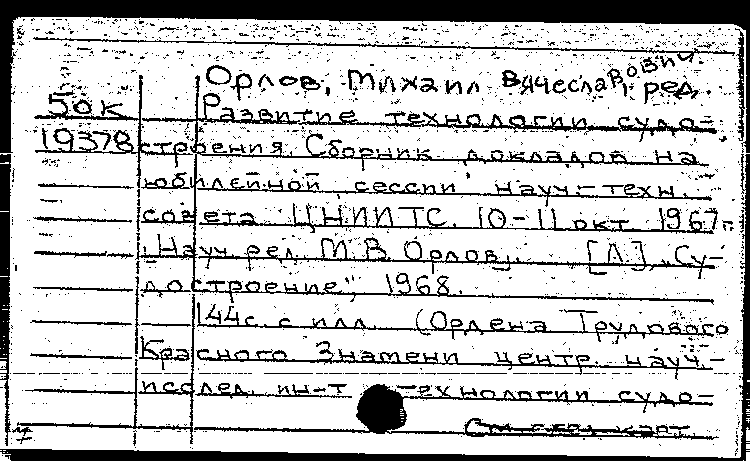 Орлов, Михаил Вячеславович, ред.
50к Развитие технологии судо-
19378 строения. Сборник докладов на
юбилейной сессии науч.-техн.
совета ЦНИИТС. 10-11 окт. 1967г.
Науч. ред. М.В. Орлов. [Л.], „Су-
достроение", 1968.
144с. с илл. (Ордена Трудового
Красного Знамени центр. науч.-
исслед. ин-т технологии судо-
См. след. карт.